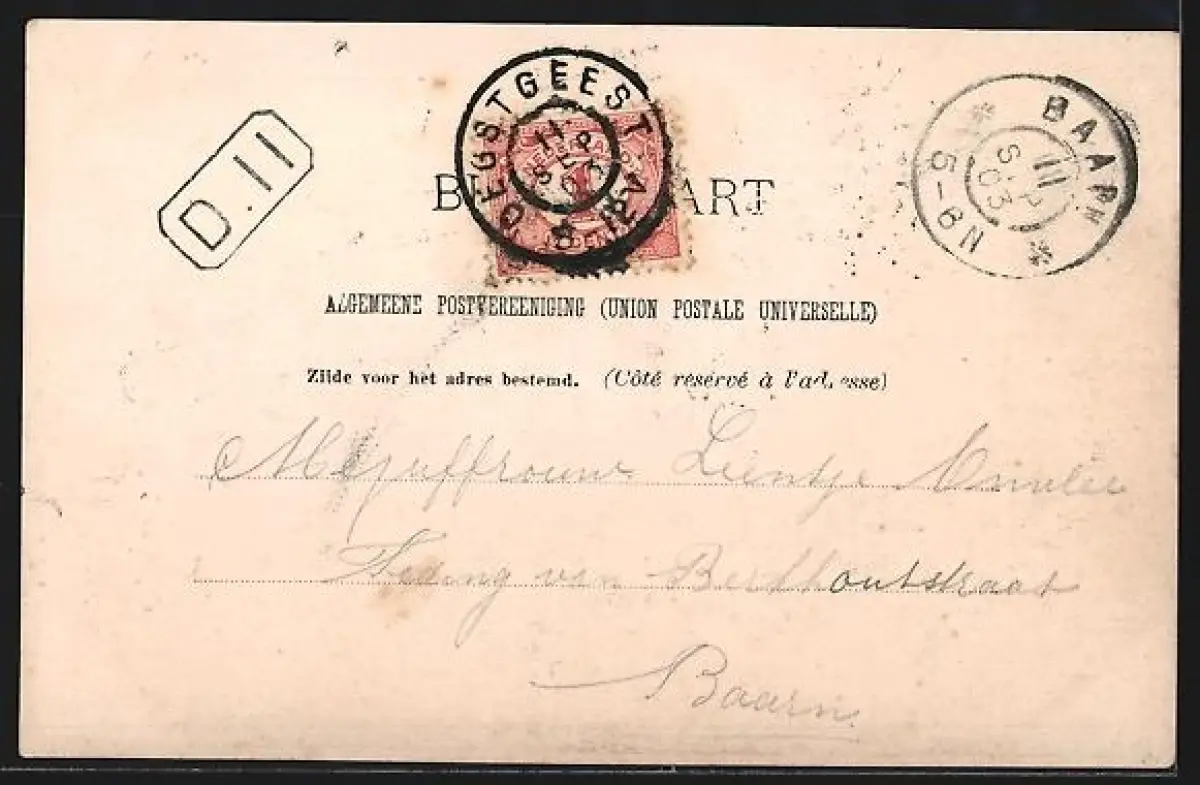 D.11
OEGSTGEEST
11 SEP 03
BAARN
11 SEP 03
5-6N
B ART
ALGEMEENE POSTVEREENIGING (UNION POSTALE UNIVERSELLE)
Zijde voor het adres bestemd. (Côté reservé à l'ad esse)
Mejuffrouw Lientje
van Berthoutstraat
Baarn